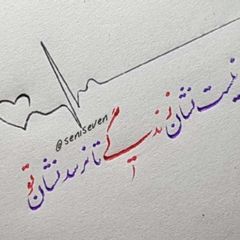 @seniseven
نیست نشان زندگی تا نرسد نشان تو